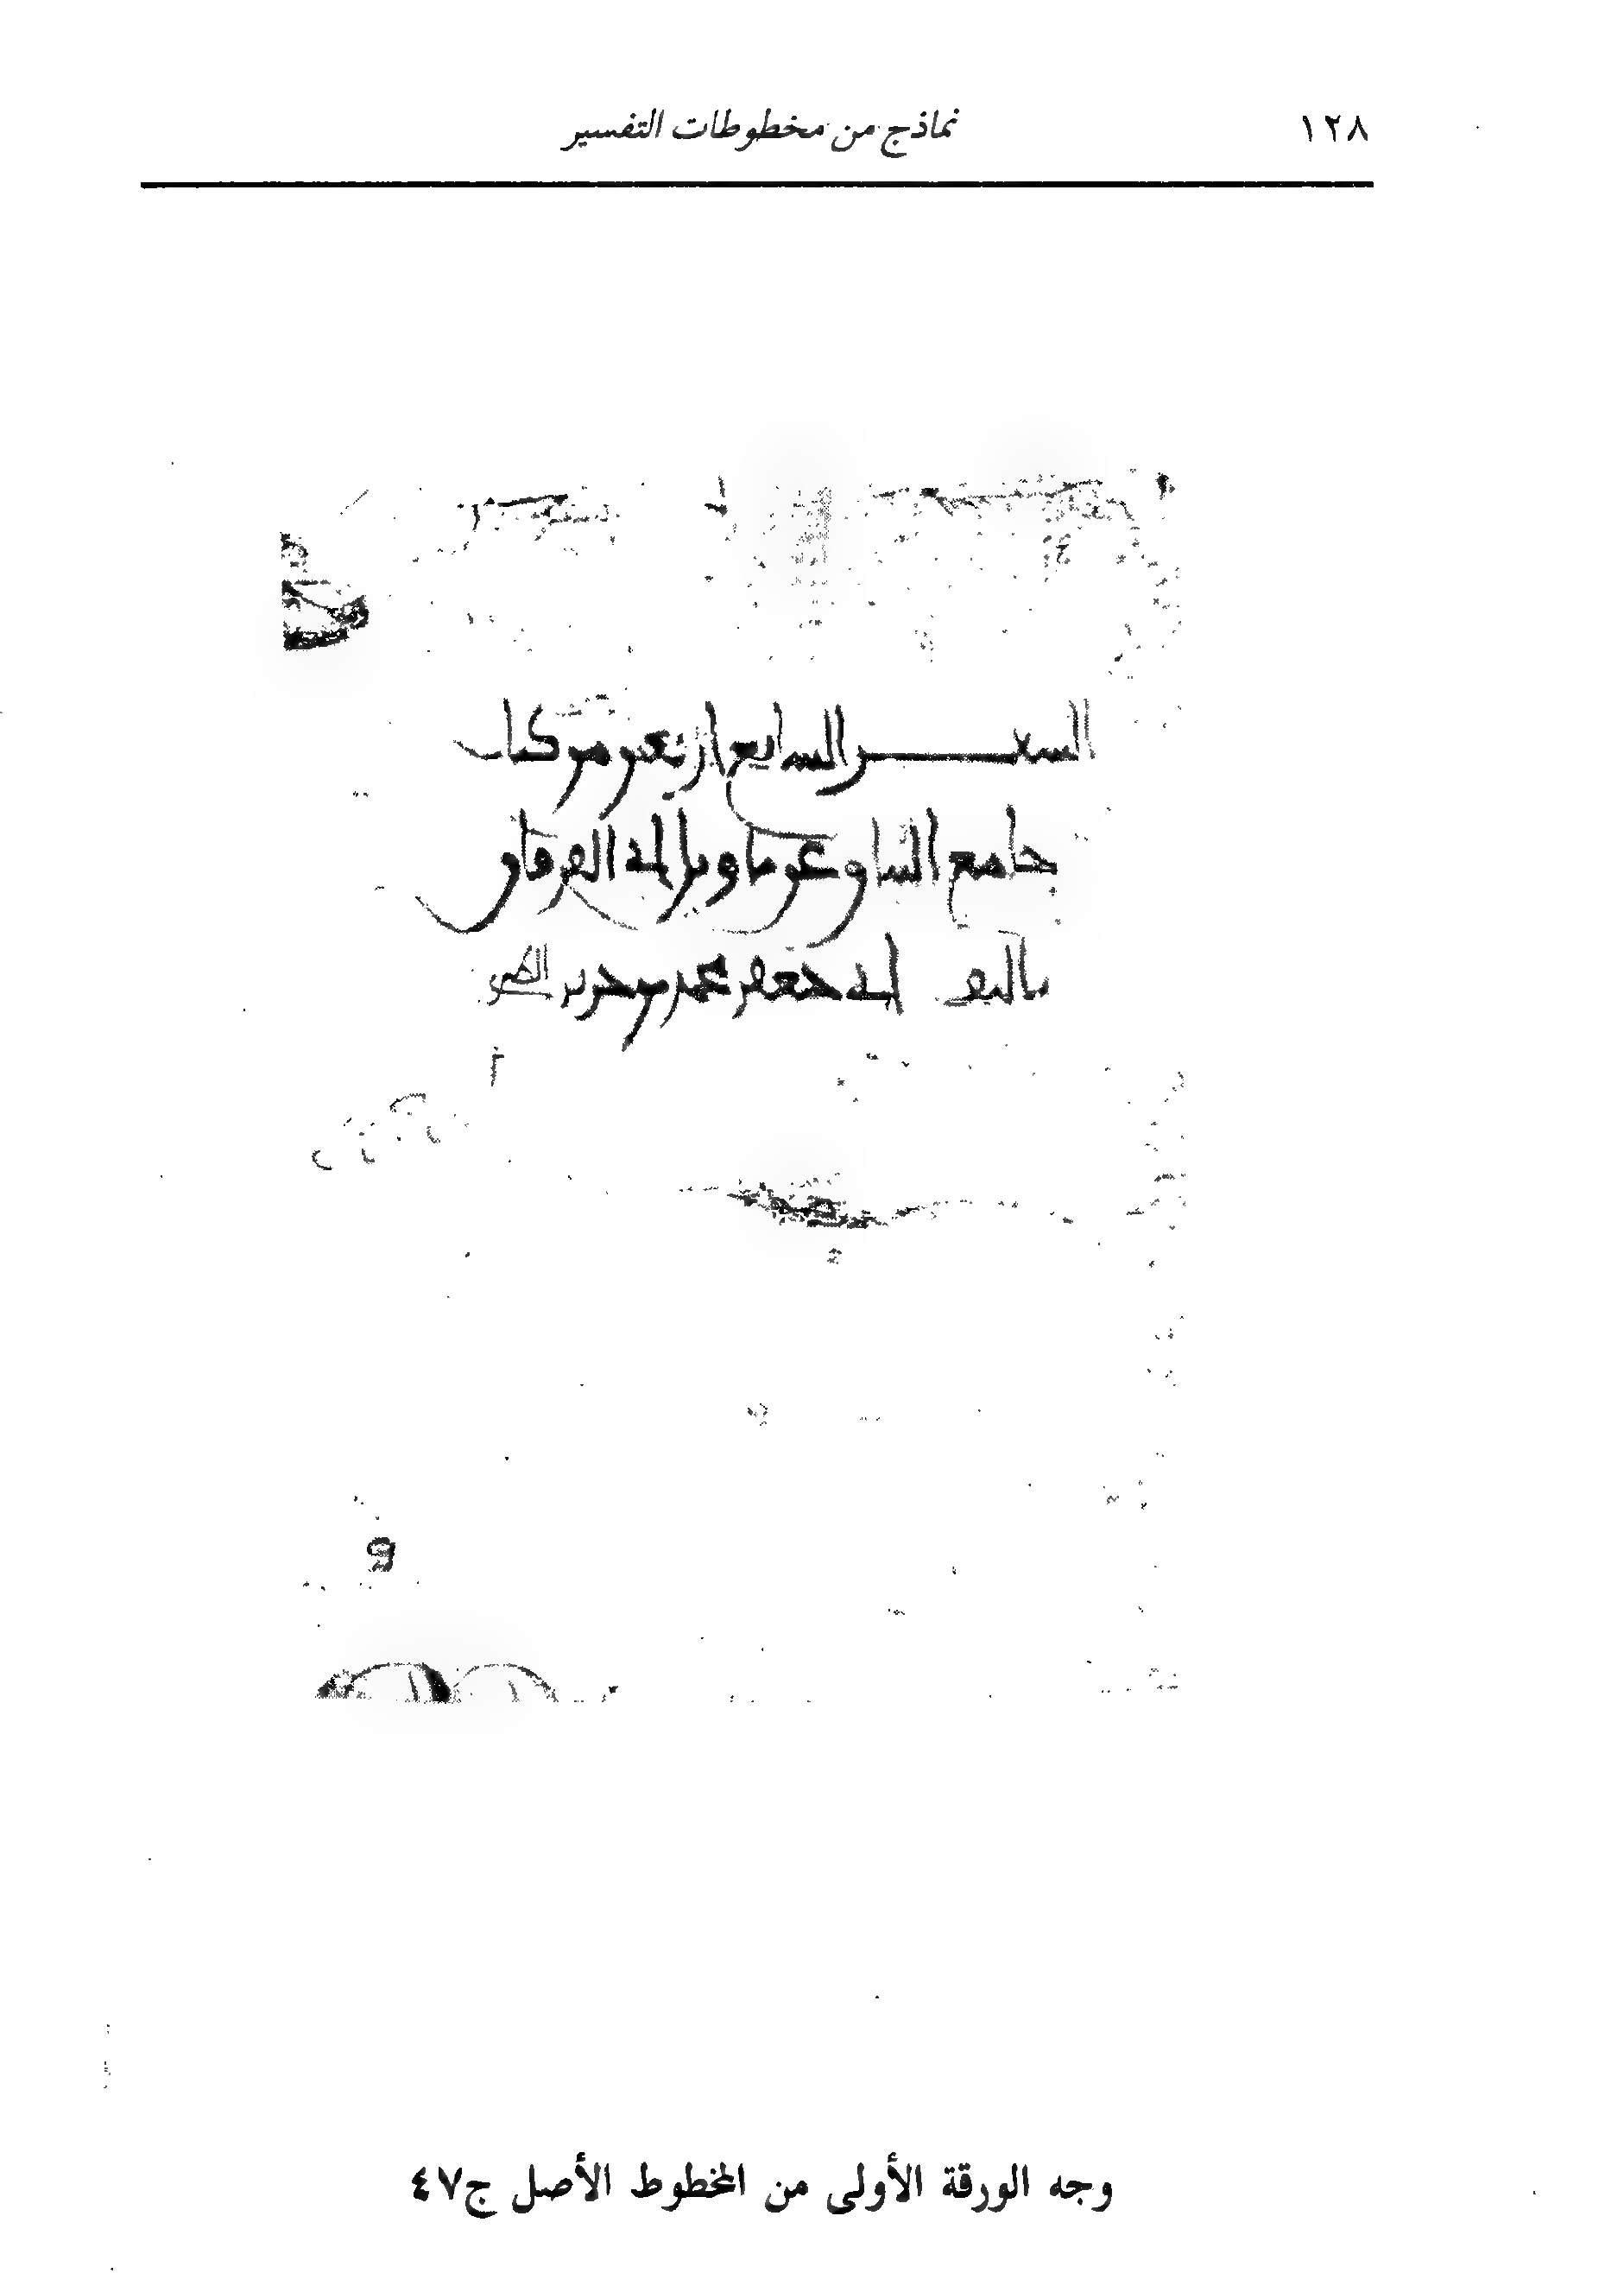 ١٢٨
نماذج من مخطوطات التفسير
السفر السابع اربعين من كتاب
جامع البيان عن تاويل اي الفرقان
تاليف ابي جعفر محمد بن جرير الطبري
وجه الورقة الأولى من المخطوط الأصل ج٤٧